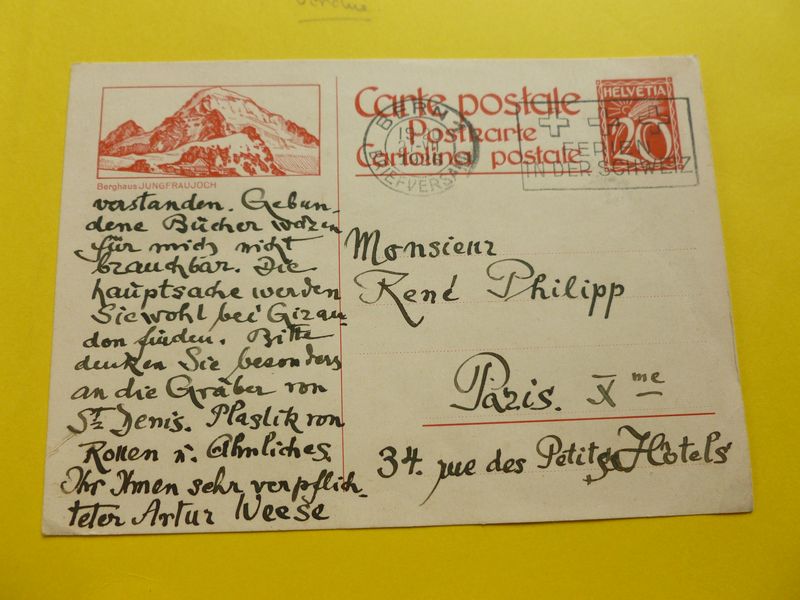 Carte postale
Postkarte
Cartolina postale
HELVETIA
20
BERN 1
BRIEFVERSAND
FERIEN
IN DER SCHWEIZ
Berghaus JUNGFRAUJOCH
verstanden. Gebun-
dene Bücher wären
für mich nicht
brauchbar. Die
hauptsache werden
Sie wohl bei Girau-
don finden. Bitte
denken Sie besonders
an die Gräber von
St Denis. Plastik von
Rouen u. Ähnliches.
Ihr Ihnen sehr verpflich-
teter Artur Weese
Monsieur
René Philipp
Paris. X me
34. rue des Petits Hôtels